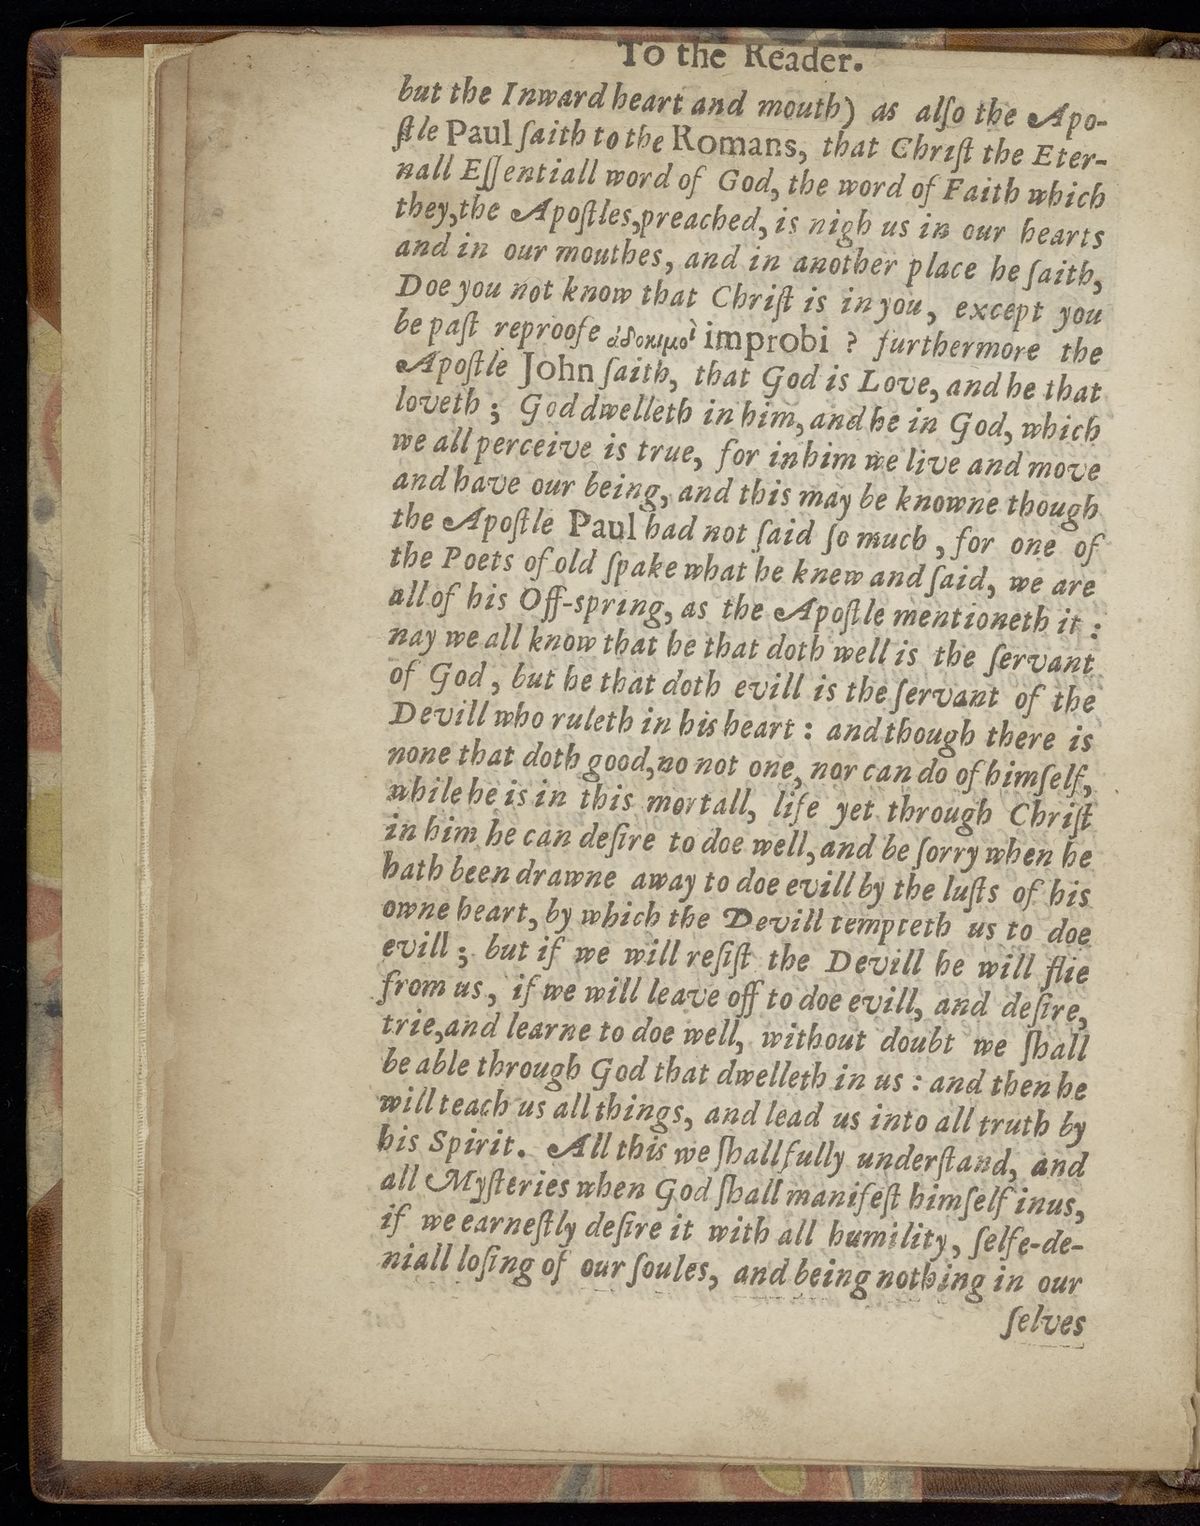 To the Reader.
but the Inward heart and mouth) as alſo the Apo-
ſtle Paul ſaith to the Romans, that Chriſt the Eter-
nall Eſſentiall word of God, the word of Faith which
they,the Apoſtles,preached, is nigh us in our hearts
and in our mouthes, and in another place he ſaith,
Doe you not know that Chriſt is in you, except you
be paſt reproofe ἀδοκιμοὶ improbi ? furthermore the
Apoſtle John ſaith, that God is Love, and he that
loveth ; God dwelleth in him, and he in God, which
we all perceive is true, for in him we live and move
and have our being, and this may be knowne though
the Apoſtle Paul had not ſaid ſo much , for one of
the Poets of old ſpake what he knew and ſaid, we are
all of his Off-spring, as the Apoſtle mentioneth it :
nay we all know that he that doth well is the ſervant
of God , but he that doth evill is the ſervant of the
Devill who ruleth in his heart : and though there is
none that doth good,no not one, nor can do of himſelf,
while he is in this mortall, life yet through Chriſt
in him he can deſire to doe well,and be ſorry when he
hath been drawne away to doe evill by the luſts of his
owne heart, by which the Devill tempteth us to doe
evill ; but if we will reſiſt the Devill he will flie
from us, if we will leave off to doe evill, and deſire,
trie,and learne to doe well, without doubt we ſhall
be able through God that dwelleth in us : and then he
will teach us all things, and lead us into all truth by
his Spirit. All this we ſhall fully underſtand, and
all Myſteries when God ſhall manifeſt himſelf in us,
if we earneſtly deſire it with all humility, ſelfe-de-
niall loſing of our ſoules, and being nothing in our
ſelves